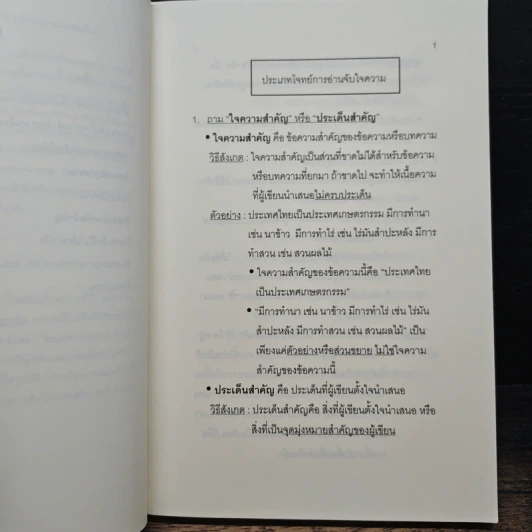 1
ประเภทโจทย์การอ่านจับใจความ
1. ถาม "ใจความสำคัญ" หรือ "ประเด็นสำคัญ"
• ใจความสำคัญ คือ ข้อความสำคัญของข้อความหรือบทความ
วิธีสังเกต : ใจความสำคัญเป็นส่วนที่ขาดไม่ได้สำหรับข้อความ
หรือบทความที่ยกมา ถ้าขาดไป จะทำให้เนื้อความ
ที่ผู้เขียนนำเสนอไม่ครบประเด็น
ตัวอย่าง : ประเทศไทยเป็นประเทศเกษตรกรรม มีการทำนา
เช่น นาข้าว มีการทำไร่ เช่น ไร่มันสำปะหลัง มีการ
ทำสวน เช่น สวนผลไม้
• ใจความสำคัญของข้อความนี้คือ "ประเทศไทย
เป็นประเทศเกษตรกรรม"
• "มีการทำนา เช่น นาข้าว มีการทำไร่ เช่น ไร่มัน
สำปะหลัง มีการทำสวน เช่น สวนผลไม้" เป็น
เพียงแค่ตัวอย่างหรือส่วนขยาย ไม่ใช่ใจความ
สำคัญของข้อความนี้
• ประเด็นสำคัญ คือ ประเด็นที่ผู้เขียนตั้งใจนำเสนอ
วิธีสังเกต : ประเด็นสำคัญคือ สิ่งที่ผู้เขียนตั้งใจนำเสนอ หรือ
สิ่งที่เป็นจุดมุ่งหมายสำคัญของผู้เขียน